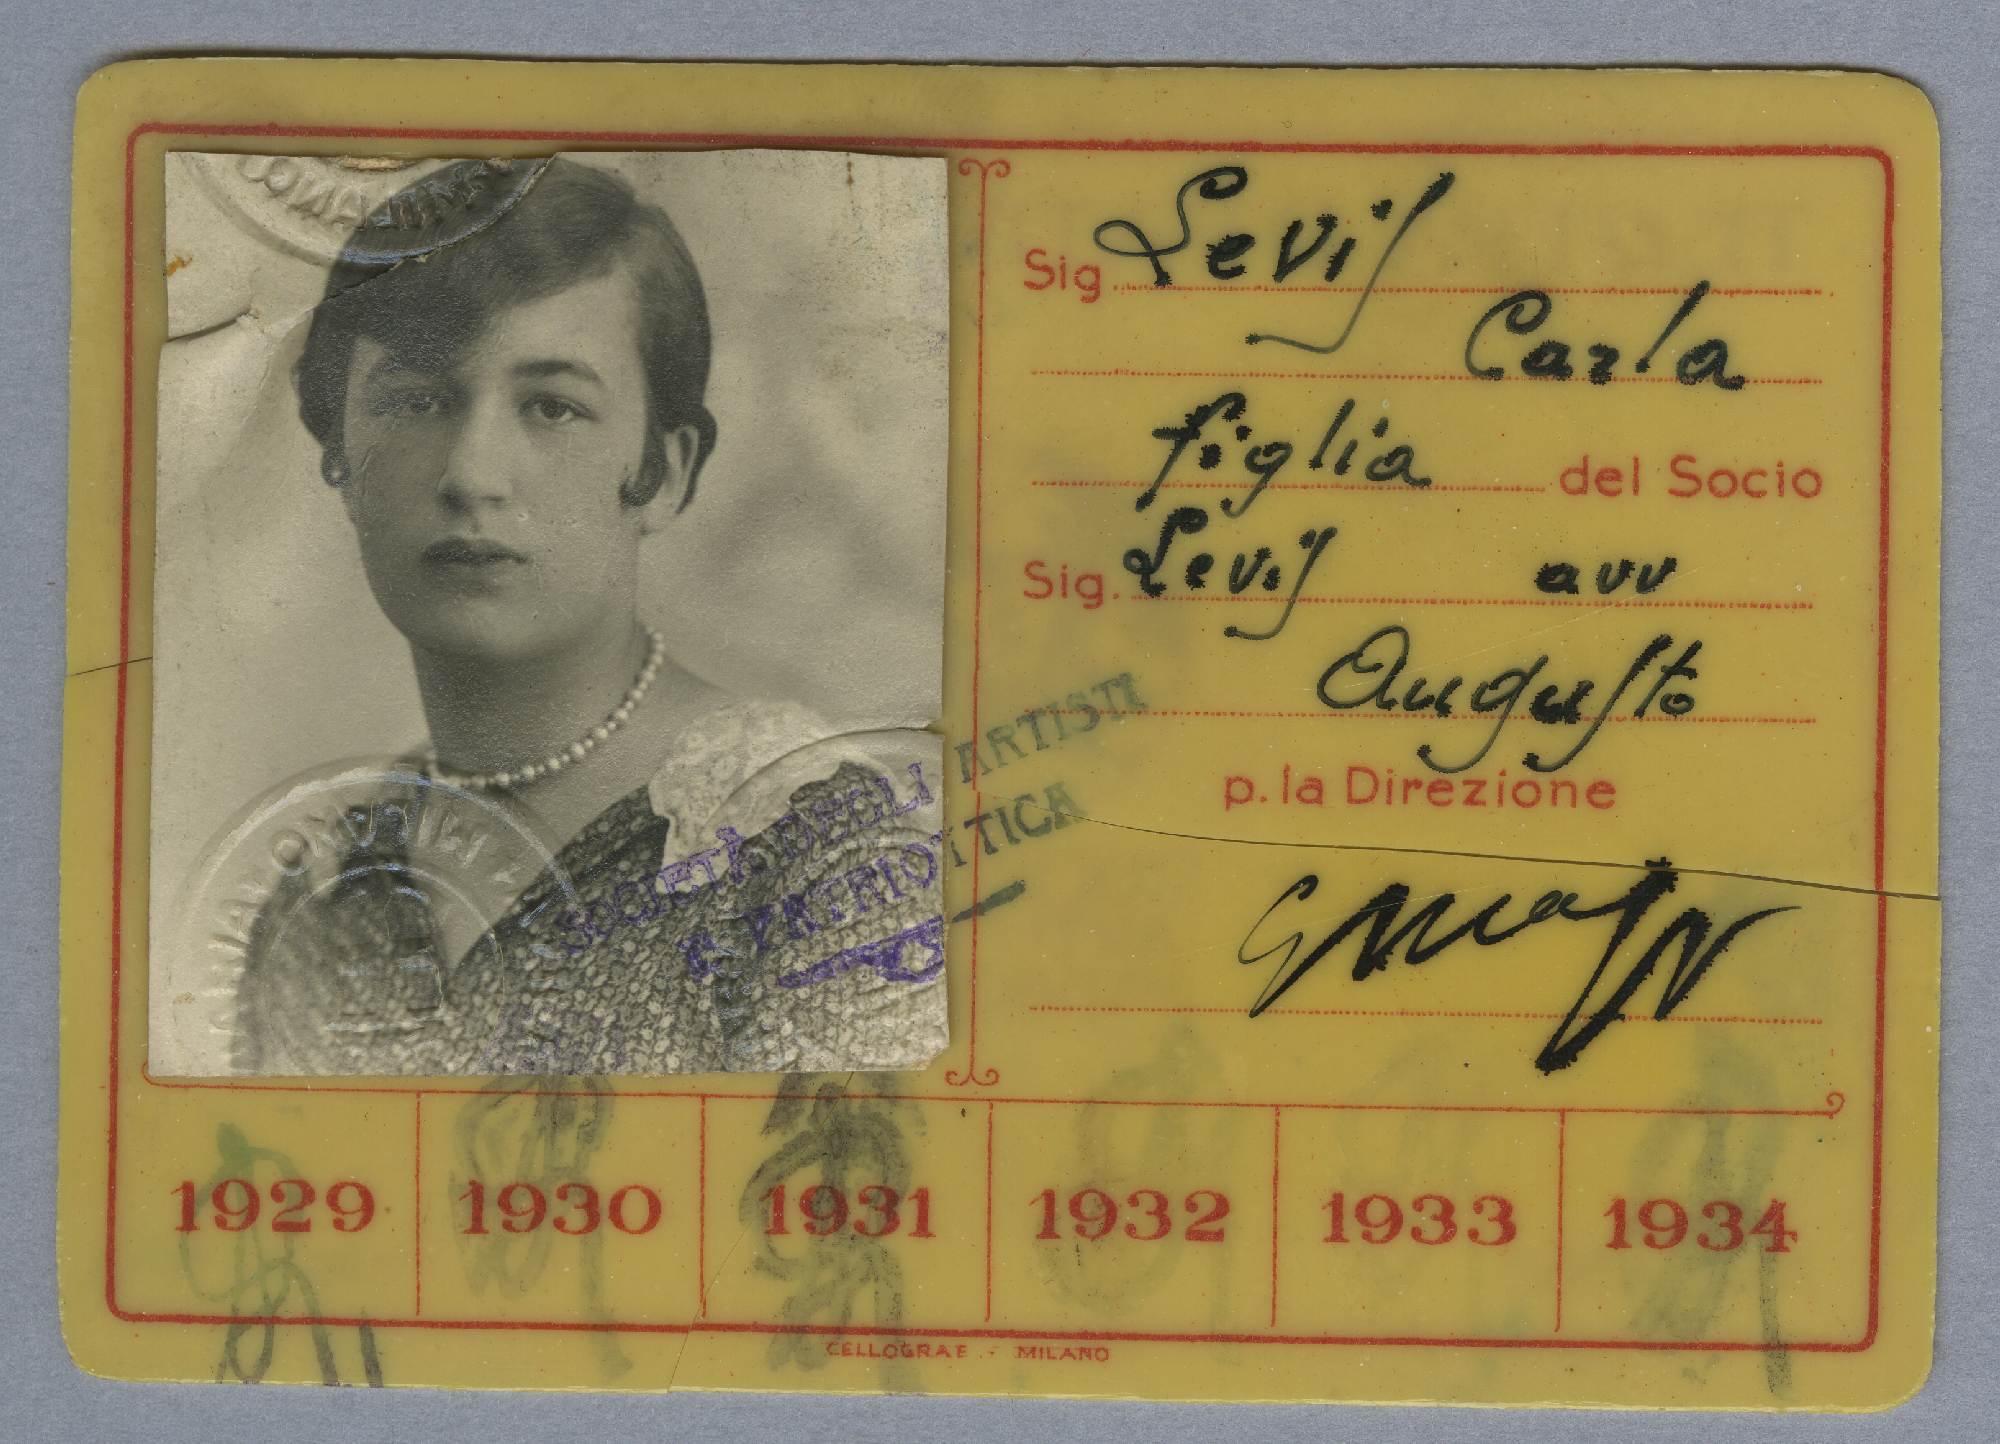 Sig. Levi
Carla
figlia del Socio
Sig. Levi avv
Augusto
SOCIETÀ DEGLI ARTISTI
E PATRIOTTICA
p. la Direzione
1929 1930 1931 1932 1933 1934
CELLOGRAF - MILANO